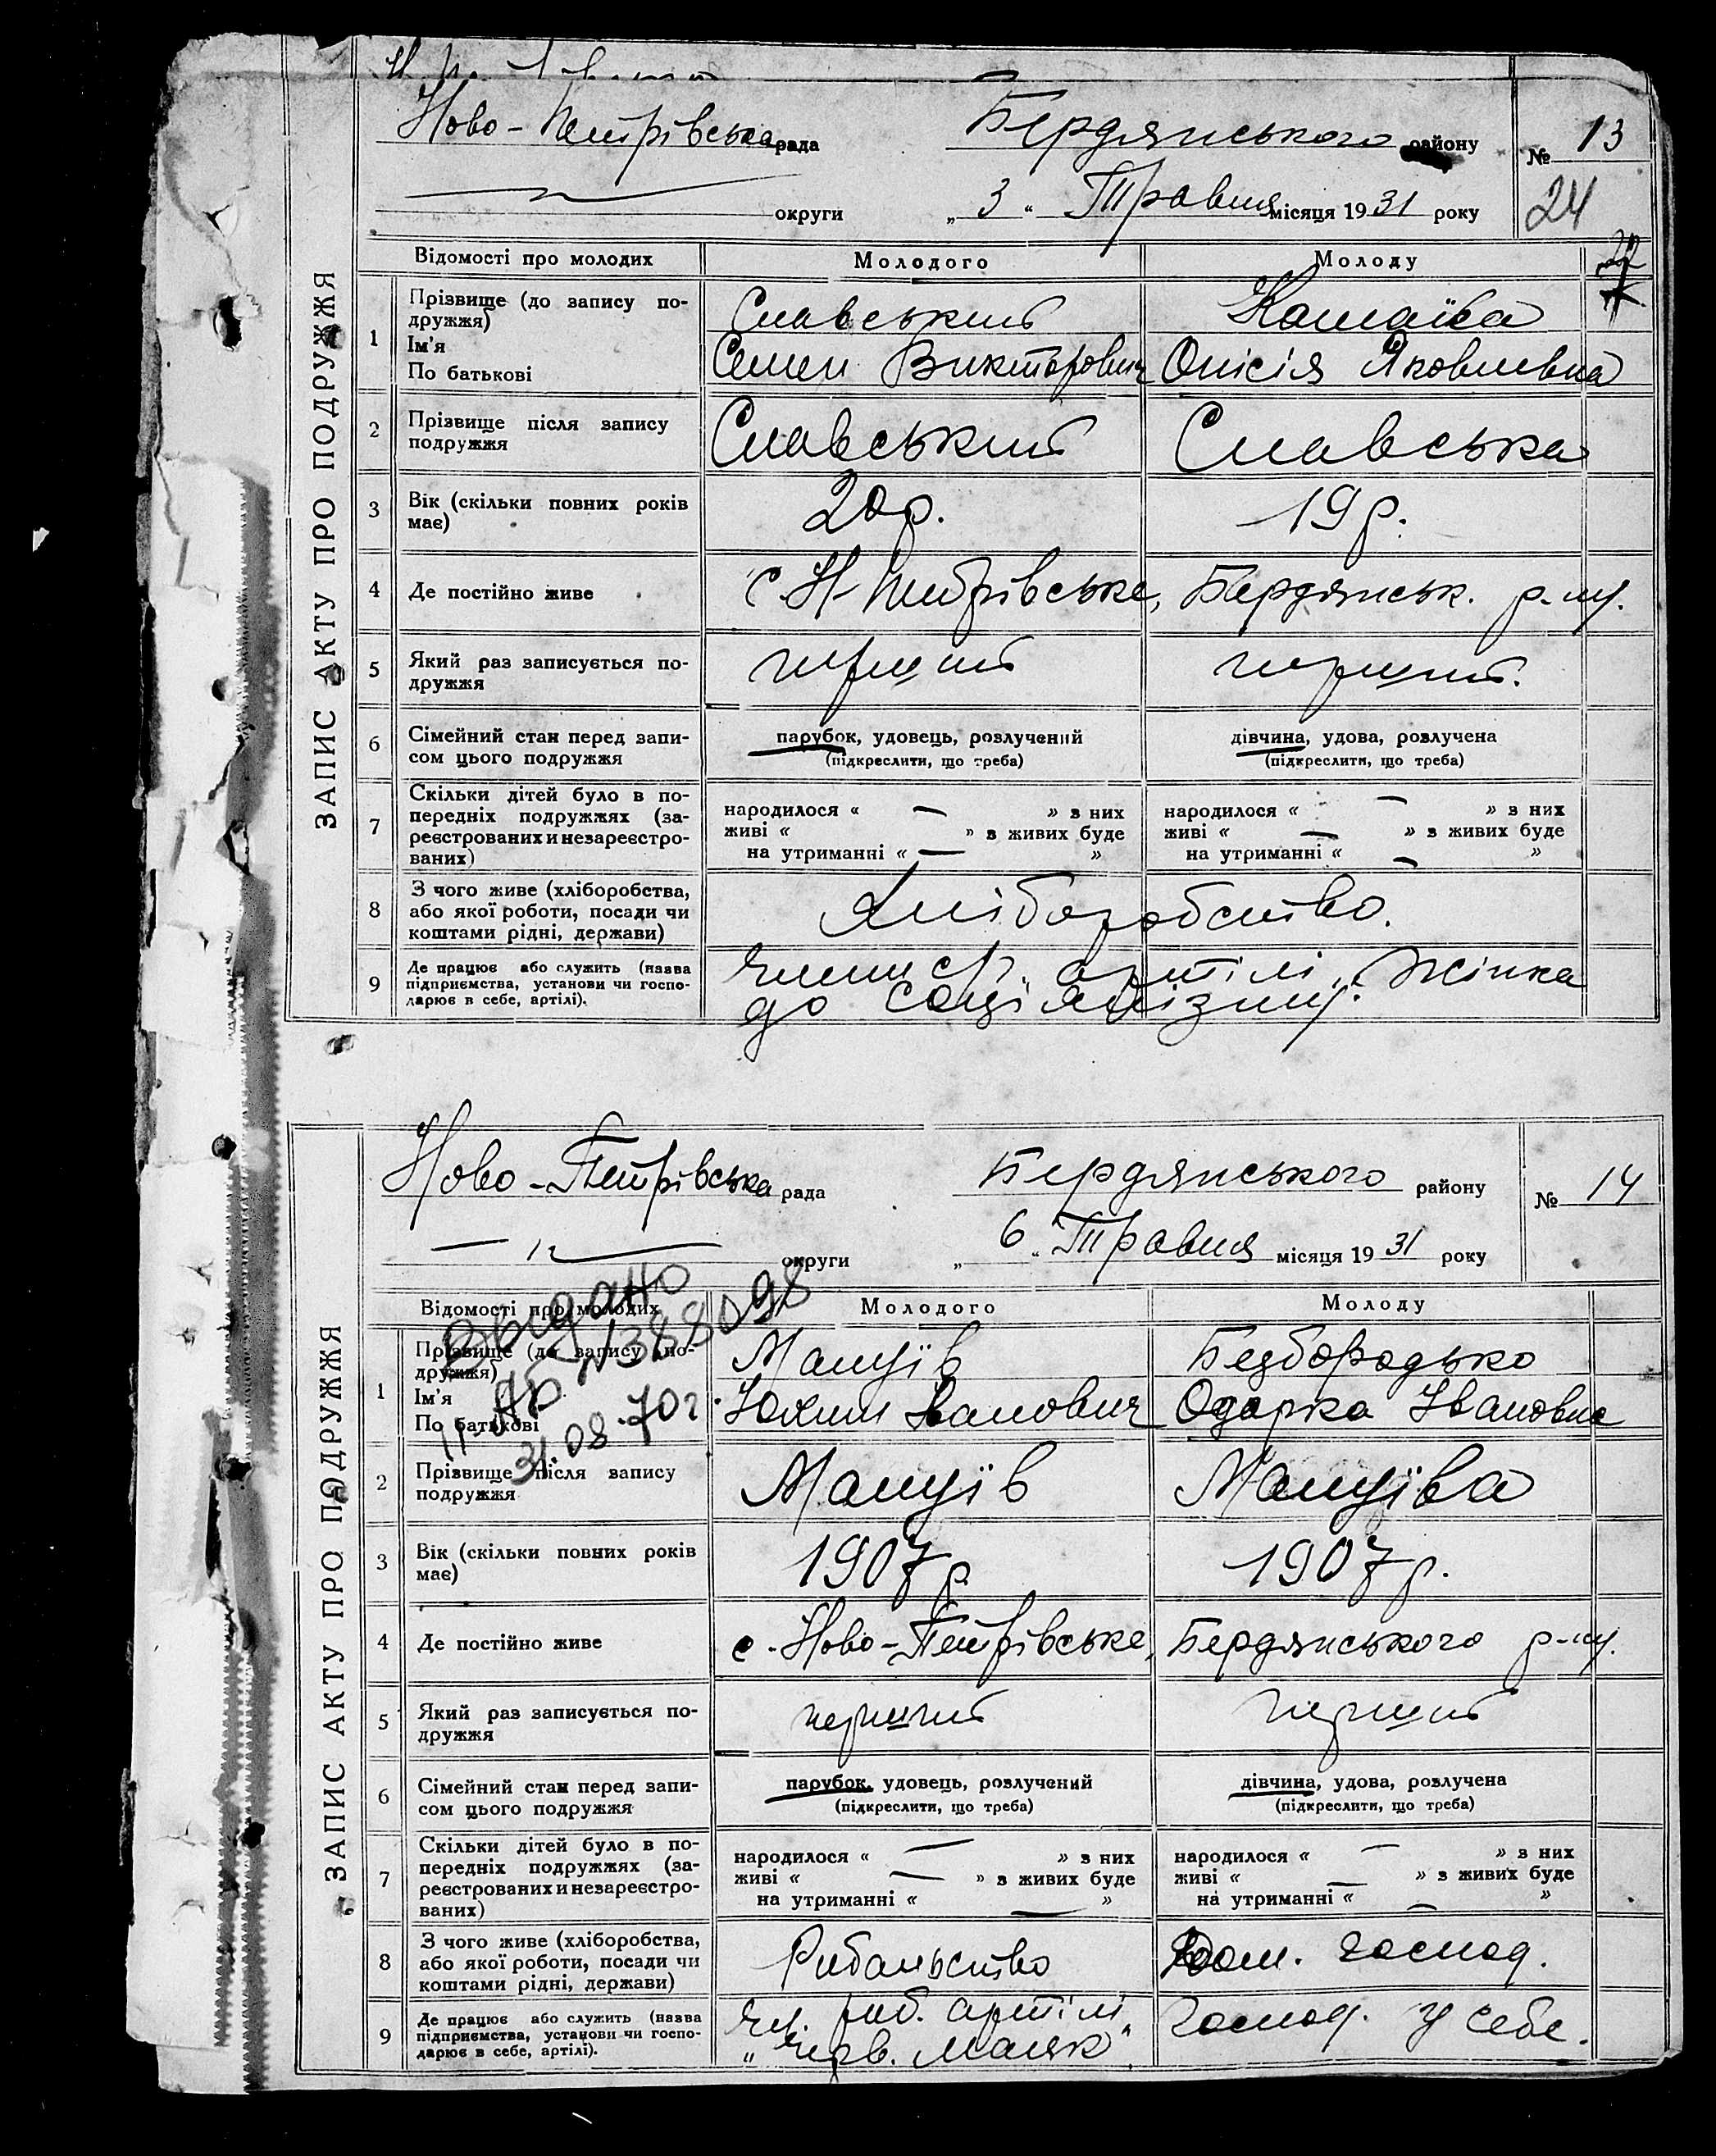 Ново-Петрівська рада Бердянського району № 13
округи „ 3 “ Травня місяця 1931 року 24
ЗАПИС АКТУ ПРО ПОДРУЖЖЯ
Відомості про молодих Молодого Молоду
1 Прізвище (до запису по-
дружжя) Славський
Ім'я
По батькові Семен Викторович Онісія Яковлевна
2 Прізвище після запису
подружжя Славський Славська
3 Вік (скільки повних років
має) 20 р. 19 р.
4 Де постійно живе с. Н-Петрівське, Бердянськ. р-ну.
5 Який раз записується по-
дружжя перший перший.
6 Сімейний стан перед запи-
сом цього подружжя парубок, удовець, розлучений дівчина, удова, розлучена
(підкреслити, що треба) (підкреслити, що треба)
7 Скільки дітей було в по-
передніх подружжях (за-
реєстрованих и незареєстро-
ваних)
народилося « — » з них народилося « — » з них
живі « » з живих буде живі « — » з живих буде
на утриманні « — » на утриманні « — »
8 З чого живе (хліборобства,
або якої роботи, посади чи
коштами рідні, держави) Хліборобство.
9 Де працює або служить (назва
підприємства, установи чи госпо-
дарює в себе, артілі).
член ср. артілі „Жінка
до соціялізму.
Ново-Петрівська рада Бердянського району № 14
округи „ 6 “ Травня місяця 1931 року
ЗАПИС АКТУ ПРО ПОДРУЖЖЯ
Выдано
№388098
31.08.70г.
Відомості про молодих Молодого Молоду
1 Прізвище (до запису по-
дружжя) Мануїв Безбородько
Ім'я
По батькові Юхим Іванович Одарка Івановна
2 Прізвище після запису
подружжя Мануїв Мануїва
3 Вік (скільки повних років
має) 1907 р 1907 р.
4 Де постійно живе с. Ново-Петрівське, Бердянського р-ну.
5 Який раз записується по-
дружжя перший перший
6 Сімейний стан перед запи-
сом цього подружжя парубок, удовець, розлучений дівчина, удова, розлучена
(підкреслити, що треба) (підкреслити, що треба)
7 Скільки дітей було в по-
передніх подружжях (за-
реєстрованих и незареєстро-
ваних)
народилося « — » з них народилося « — » з них
живі « — » з живих буде живі « — » з живих буде
на утриманні « — » на утриманні « — »
8 З чого живе (хліборобства,
або якої роботи, посади чи
коштами рідні, держави) Рибальство Дом. господ.
9 Де працює або служить (назва
підприємства, установи чи госпо-
дарює в себе, артілі).
чл. риб. артілі господ. у себе.
„Черв. Маяк“